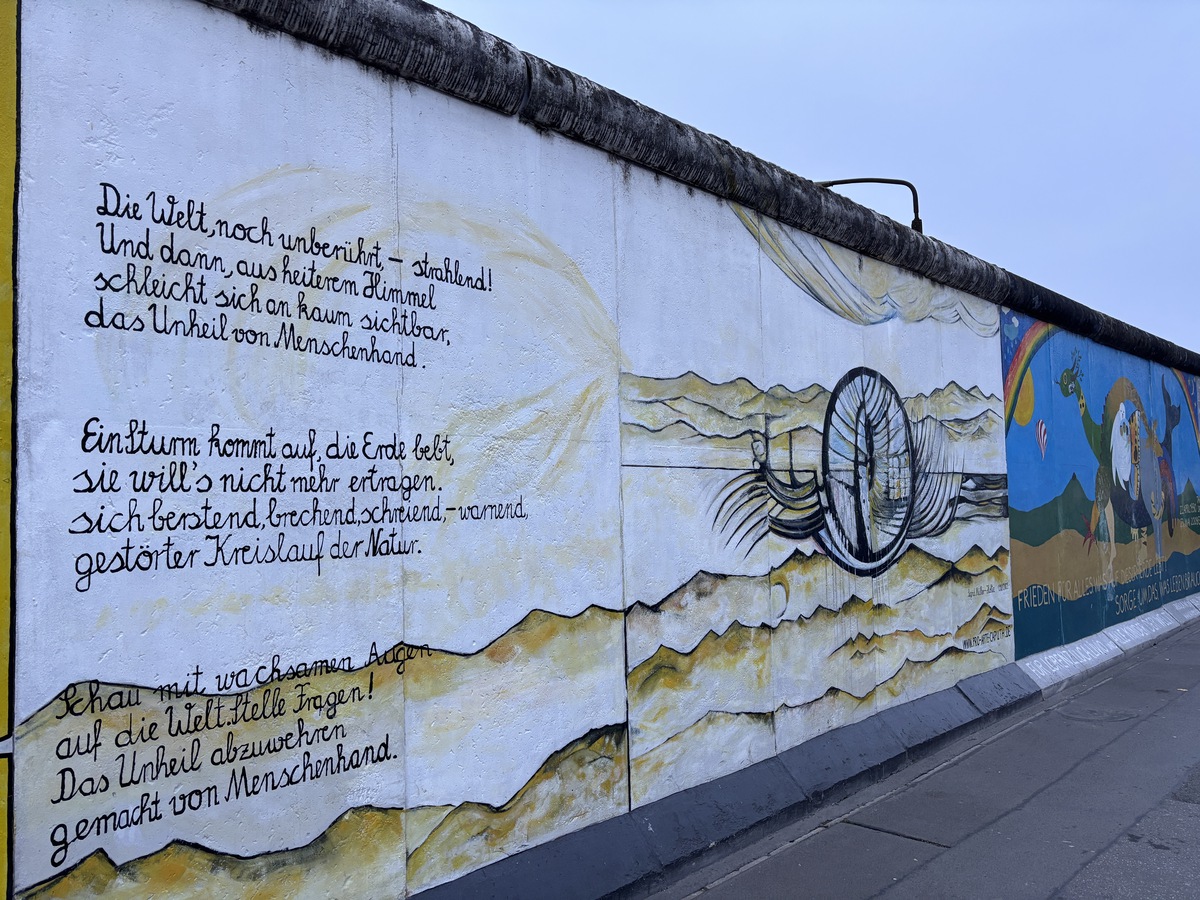 Die Welt, noch unberührt, – strahlend!
Und dann, aus heiterem Himmel
schleicht sich an kaum sichtbar,
das Unheil von Menschenhand.
Ein Sturm kommt auf, die Erde bebt,
sie will's nicht mehr ertragen.
sich berstend, brechend, schreiend, – warnend,
gestörter Kreislauf der Natur.
Schau mit wachsamen Augen
auf die Welt. Stelle Fragen!
Das Unheil abzuwehren
gemacht von Menschenhand.
WWW.PRO-ARTE-CAPUTH.DE
FRIEDEN FÜR ALLES WAS AUF DIESER ERDE LEBT
SORGE UM DAS WAS LEBEN BRAUCHT